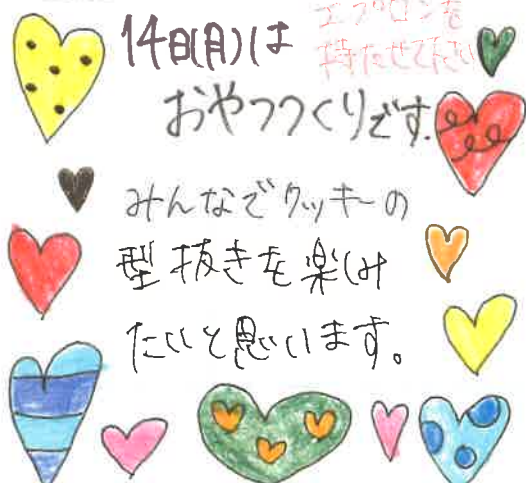 14日(月)は
エプロンを
持たせて下さい
おやつつくりです.
みんなでクッキーの
型抜きを楽しみ
たいと思います。